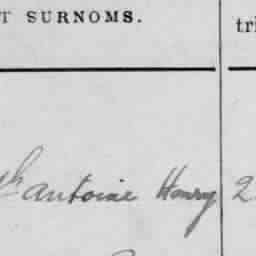 T SURNOMS.
tri
antoine Henry 2